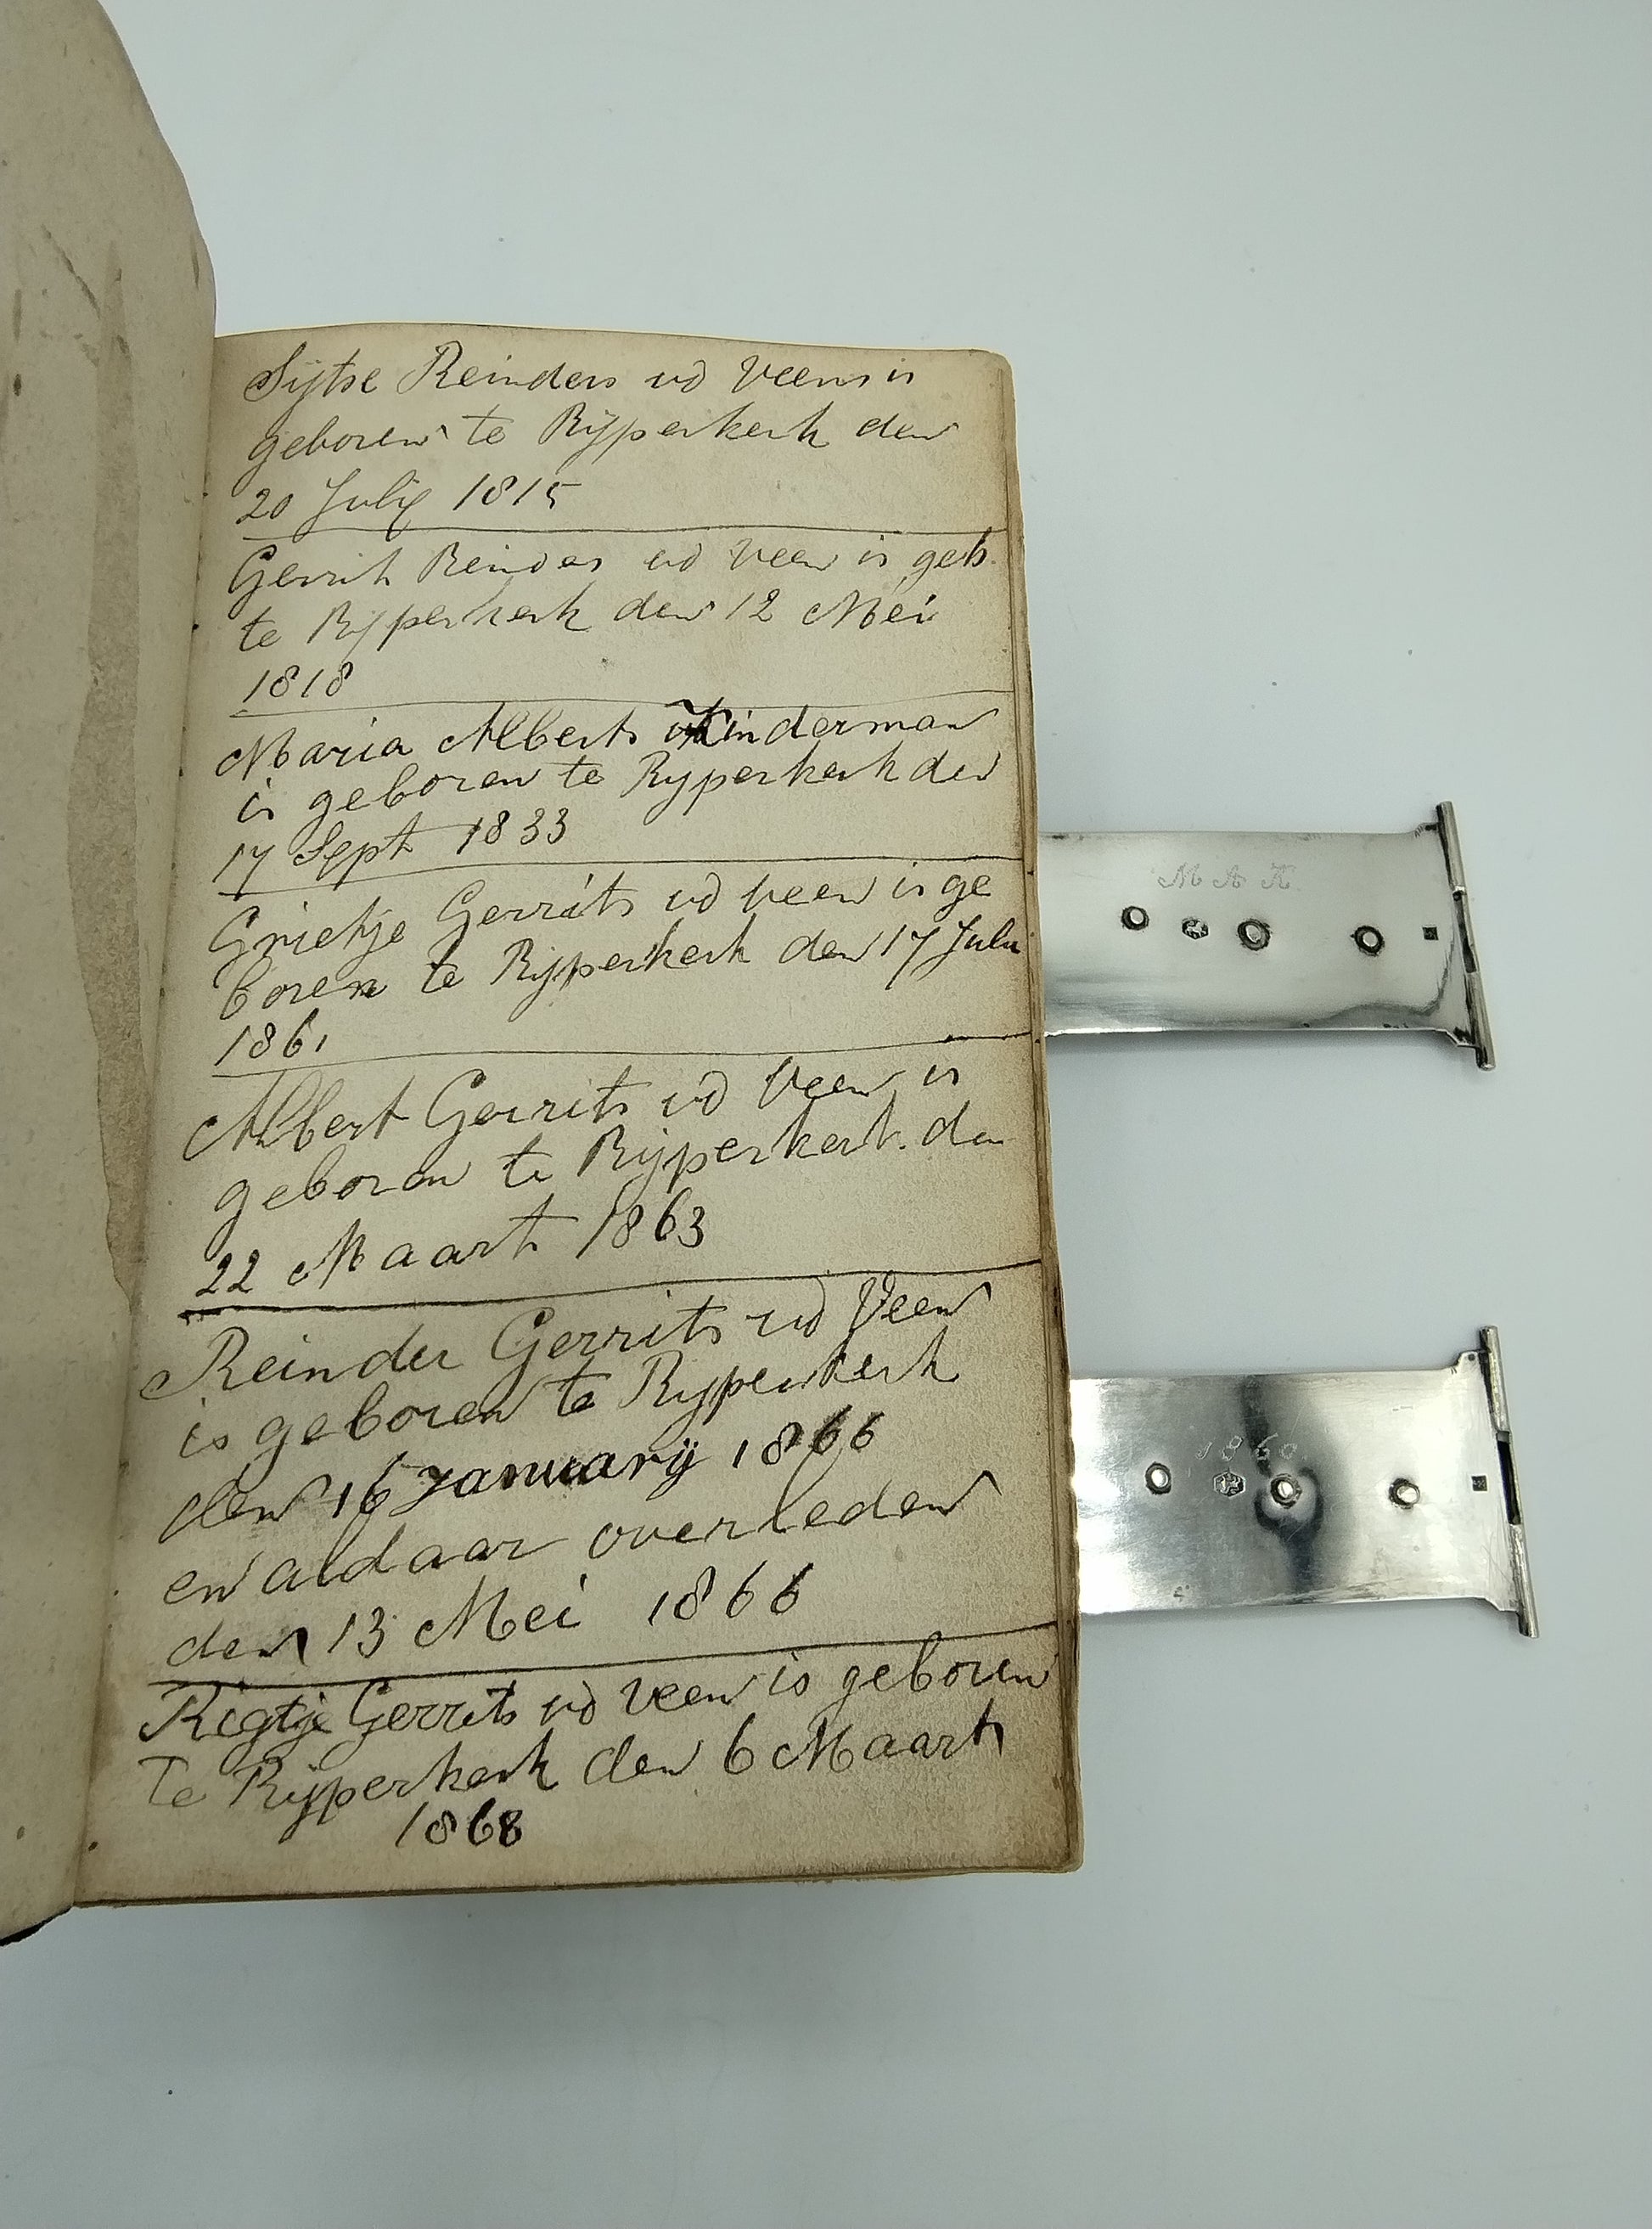 Sijtse Reinders vd Veen is
geboren te Rijperkerk den
20 Julij 1815
Gerrit Reinders vd Veen is geb.
te Ryperkerk den 12 Mei
1818
Maria Alberts Kinderman
is geboren te Ryperkerk den
17 Sept 1833
Grietje Gerrits vd Veen is ge
boren te Rijperkerk den 17 July
1861
Albert Gerrits vd Veen is
geboren te Rijperkerk. den
22 Maart 1863
Reinder Gerrits vd Veen
is geboren te Ryperkerk
den 16 Januarij 1866
en aldaar overleden
den 13 Mei 1866
Rigtje Gerrits vd Veen is geboren
te Rijperkerk den 6 Maart
1868
M A K
1860